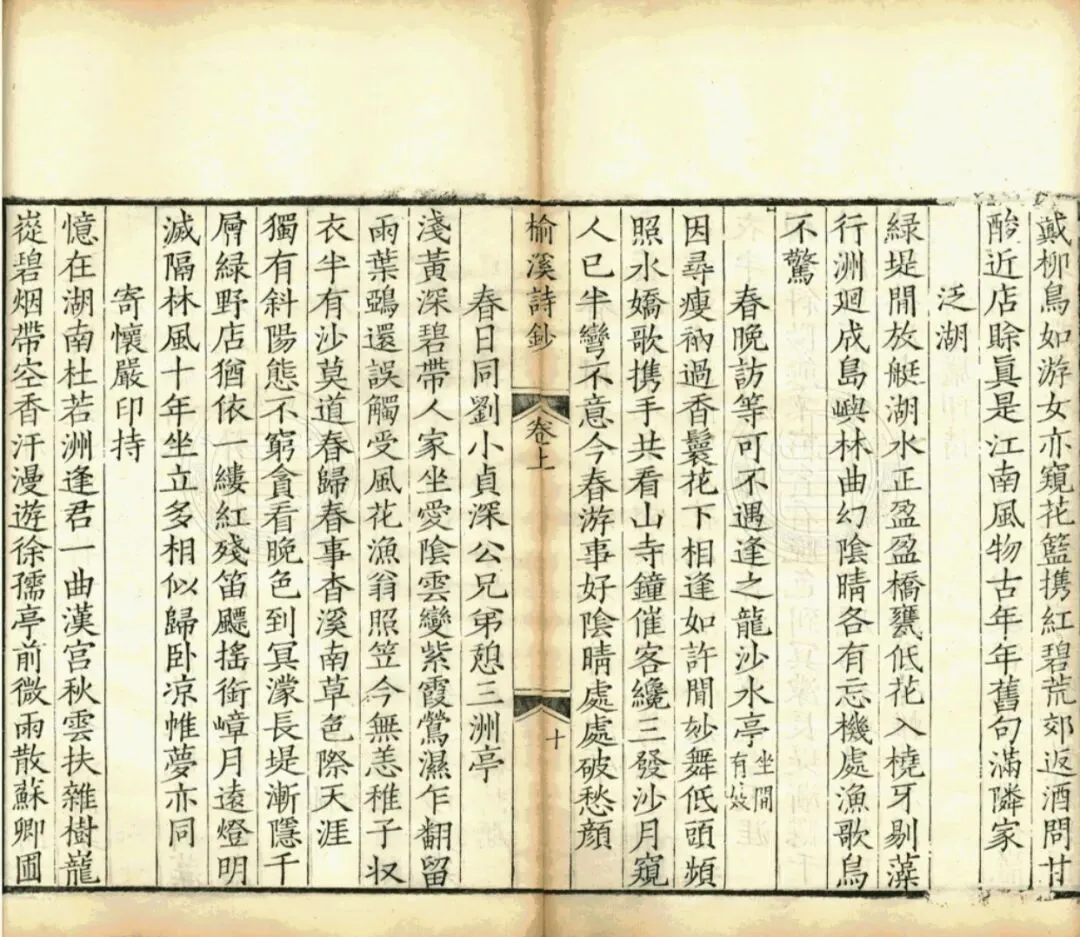 戴柳鳥如游女亦窺花籃携紅碧荒郊返酒問甘
酸近店賖眞是江南風物古年年舊句滿隣家
泛湖
緑堤閒放艇湖水正盈盈橋甕低花入橈牙剔藻
行洲廻成島嶼林曲幻陰晴各有忘機處漁歌鳥
不驚
春晚訪等可不遇逢之龍沙水亭坐閒有妓
因尋瘦衲過香鬟花下相逢如許閒妙舞低頭頻
照水嬌歌携手共看山寺鐘催客纔三發沙月窺
人已半彎不意今春游事好陰晴處處破愁顔
榆溪詩鈔
卷上
十
春日同劉小貞深公兄弟憩三洲亭
淺黃深碧帶人家坐愛陰雲變紫霞鶯濕乍翻留
雨葉鵶還誤觸受風花漁翁照笠今無恙稚子収
衣半有沙莫道春歸春事杳溪南草色際天涯
獨有斜陽態不窮貪看晚色到冥濛長堤漸隱千
層緑野店猶依一縷紅殘笛飃搖銜嶂月遠燈明
滅隔林風十年坐立多相似歸卧凉帷夢亦同
寄懷嚴印持
憶在湖南杜若洲逢君一曲漢宮秋雲扶雜樹龍
嵸碧烟帶空香汗漫遊徐孺亭前微雨散蘇卿圃